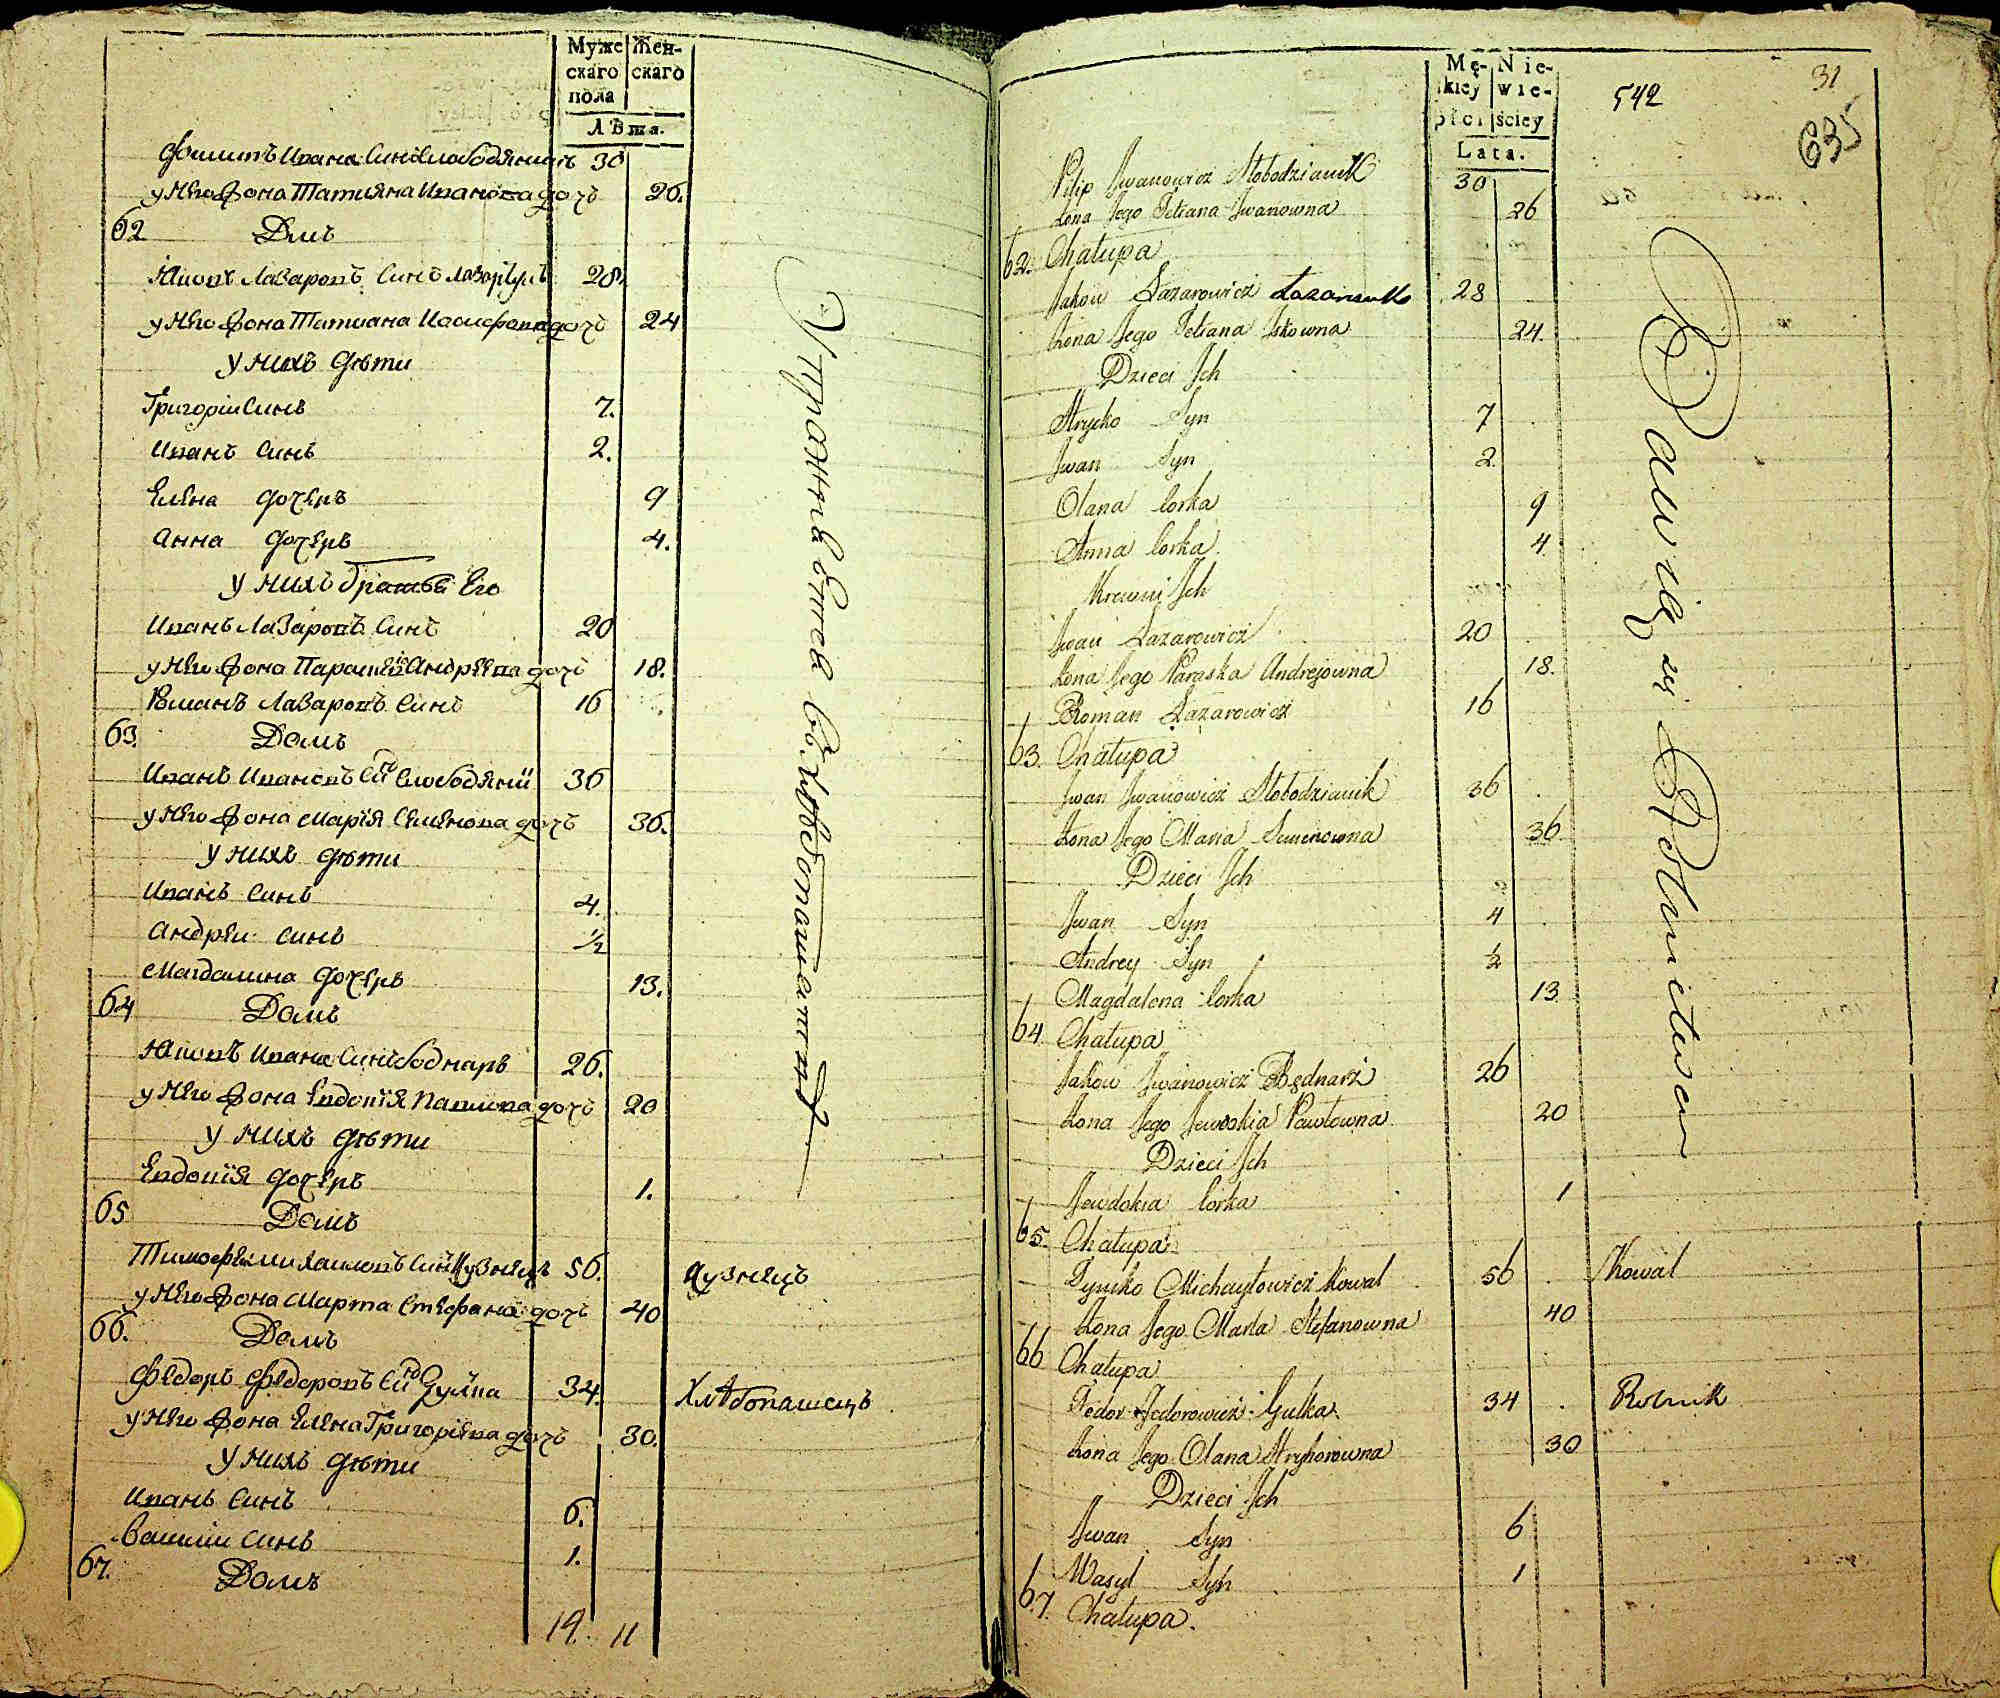 Муже Жен-
скаго скаго
пола
Лѣта.
Филипъ Ивана Синъ Слободянникъ 30
у Него Жена Татияна Иванова дочь 26.
62 Домъ
Яковъ Лазаровъ Синъ 28.
у Него Жена Татиана дочь 24
у нихъ дѣти
Григорій Синъ 7.
Иванъ Синъ 2.
Елена дочерь 9
Анна дочерь 4.
у нихъ братья Его
Иванъ Лазаровъ Синъ 20
у Него Жена Параскевія Андреева дочь 18.
Романъ Лазаровъ Синъ 16
63. Домъ
Иванъ Ивановъ Слободяній 36
у Него Жена Марія Семенова дочь 36.
у нихъ дѣти
Иванъ Синъ 4.
Андрей Синъ 1/2
Магдалина дочерь 13.
64 Домъ
Яковъ Ивана Синъ Боднаръ 26.
у Него Жена Евдокія Павлова дочь 20
у нихъ дѣти
Евдокія дочерь 1.
65 Домъ
Тимофей Михаиловъ Синъ Кузнецъ 56. Кузнецъ
у Него Жена Марта Стефана дочь 40
66. Домъ
Федоръ Федоровъ Гулка 34. Хлѣбопашецъ
у Него Жена Елена Григоріева дочь 30.
у нихъ дѣти
Иванъ Синъ 6.
Василій Синъ 1.
67. Домъ
14. 11
Упражнѣется въ Хлѣбопашествѣ
Mę- Nie-
kiey wie-
płci ściey
Lata.
542
31
635
Pilip Iwanowicz Słobodzianik 30
Żona Jego Tetiana Iwanowna 26
62. Chałupa
Jakow Łazarowicz Łazariuk 28
Żona Jego Tetiana Iskowna 24.
Dzieci Ich
Hrycko Syn 7
Iwan Syn 2.
Olana Corka 9
Anna Corka 4.
Krewni Ich
Iwan Łazarowicz 20
Żona Jego Paraska Andrejowna 18.
Roman Łazarowicz 16
63. Chałupa
Iwan Iwanowicz Słobodzianik 36
Żona Jego Maria Semenowna 36.
Dzieci Ich
Iwan Syn 4
Andrey Syn 1/2
Magdalena Corka 13
64 Chałupa
Jakow Iwanowicz Bednarz 26
Żona Jego Jewdokia Pawłowna 20
Dzieci Ich
Jewdokia Corka 1
65. Chałupa
Tymko Michayłowicz Kowal 56 Kowal
Żona Jego Marta Stefanowna 40
66 Chałupa
Fedor Fedorowicz Gulka 34 Rolnik
Żona Jego Olana Hryhorowna 30
Dzieci Ich
Iwan Syn 6
Wasyl Syn 1
67. Chałupa.
Bawią się Rolnictwem